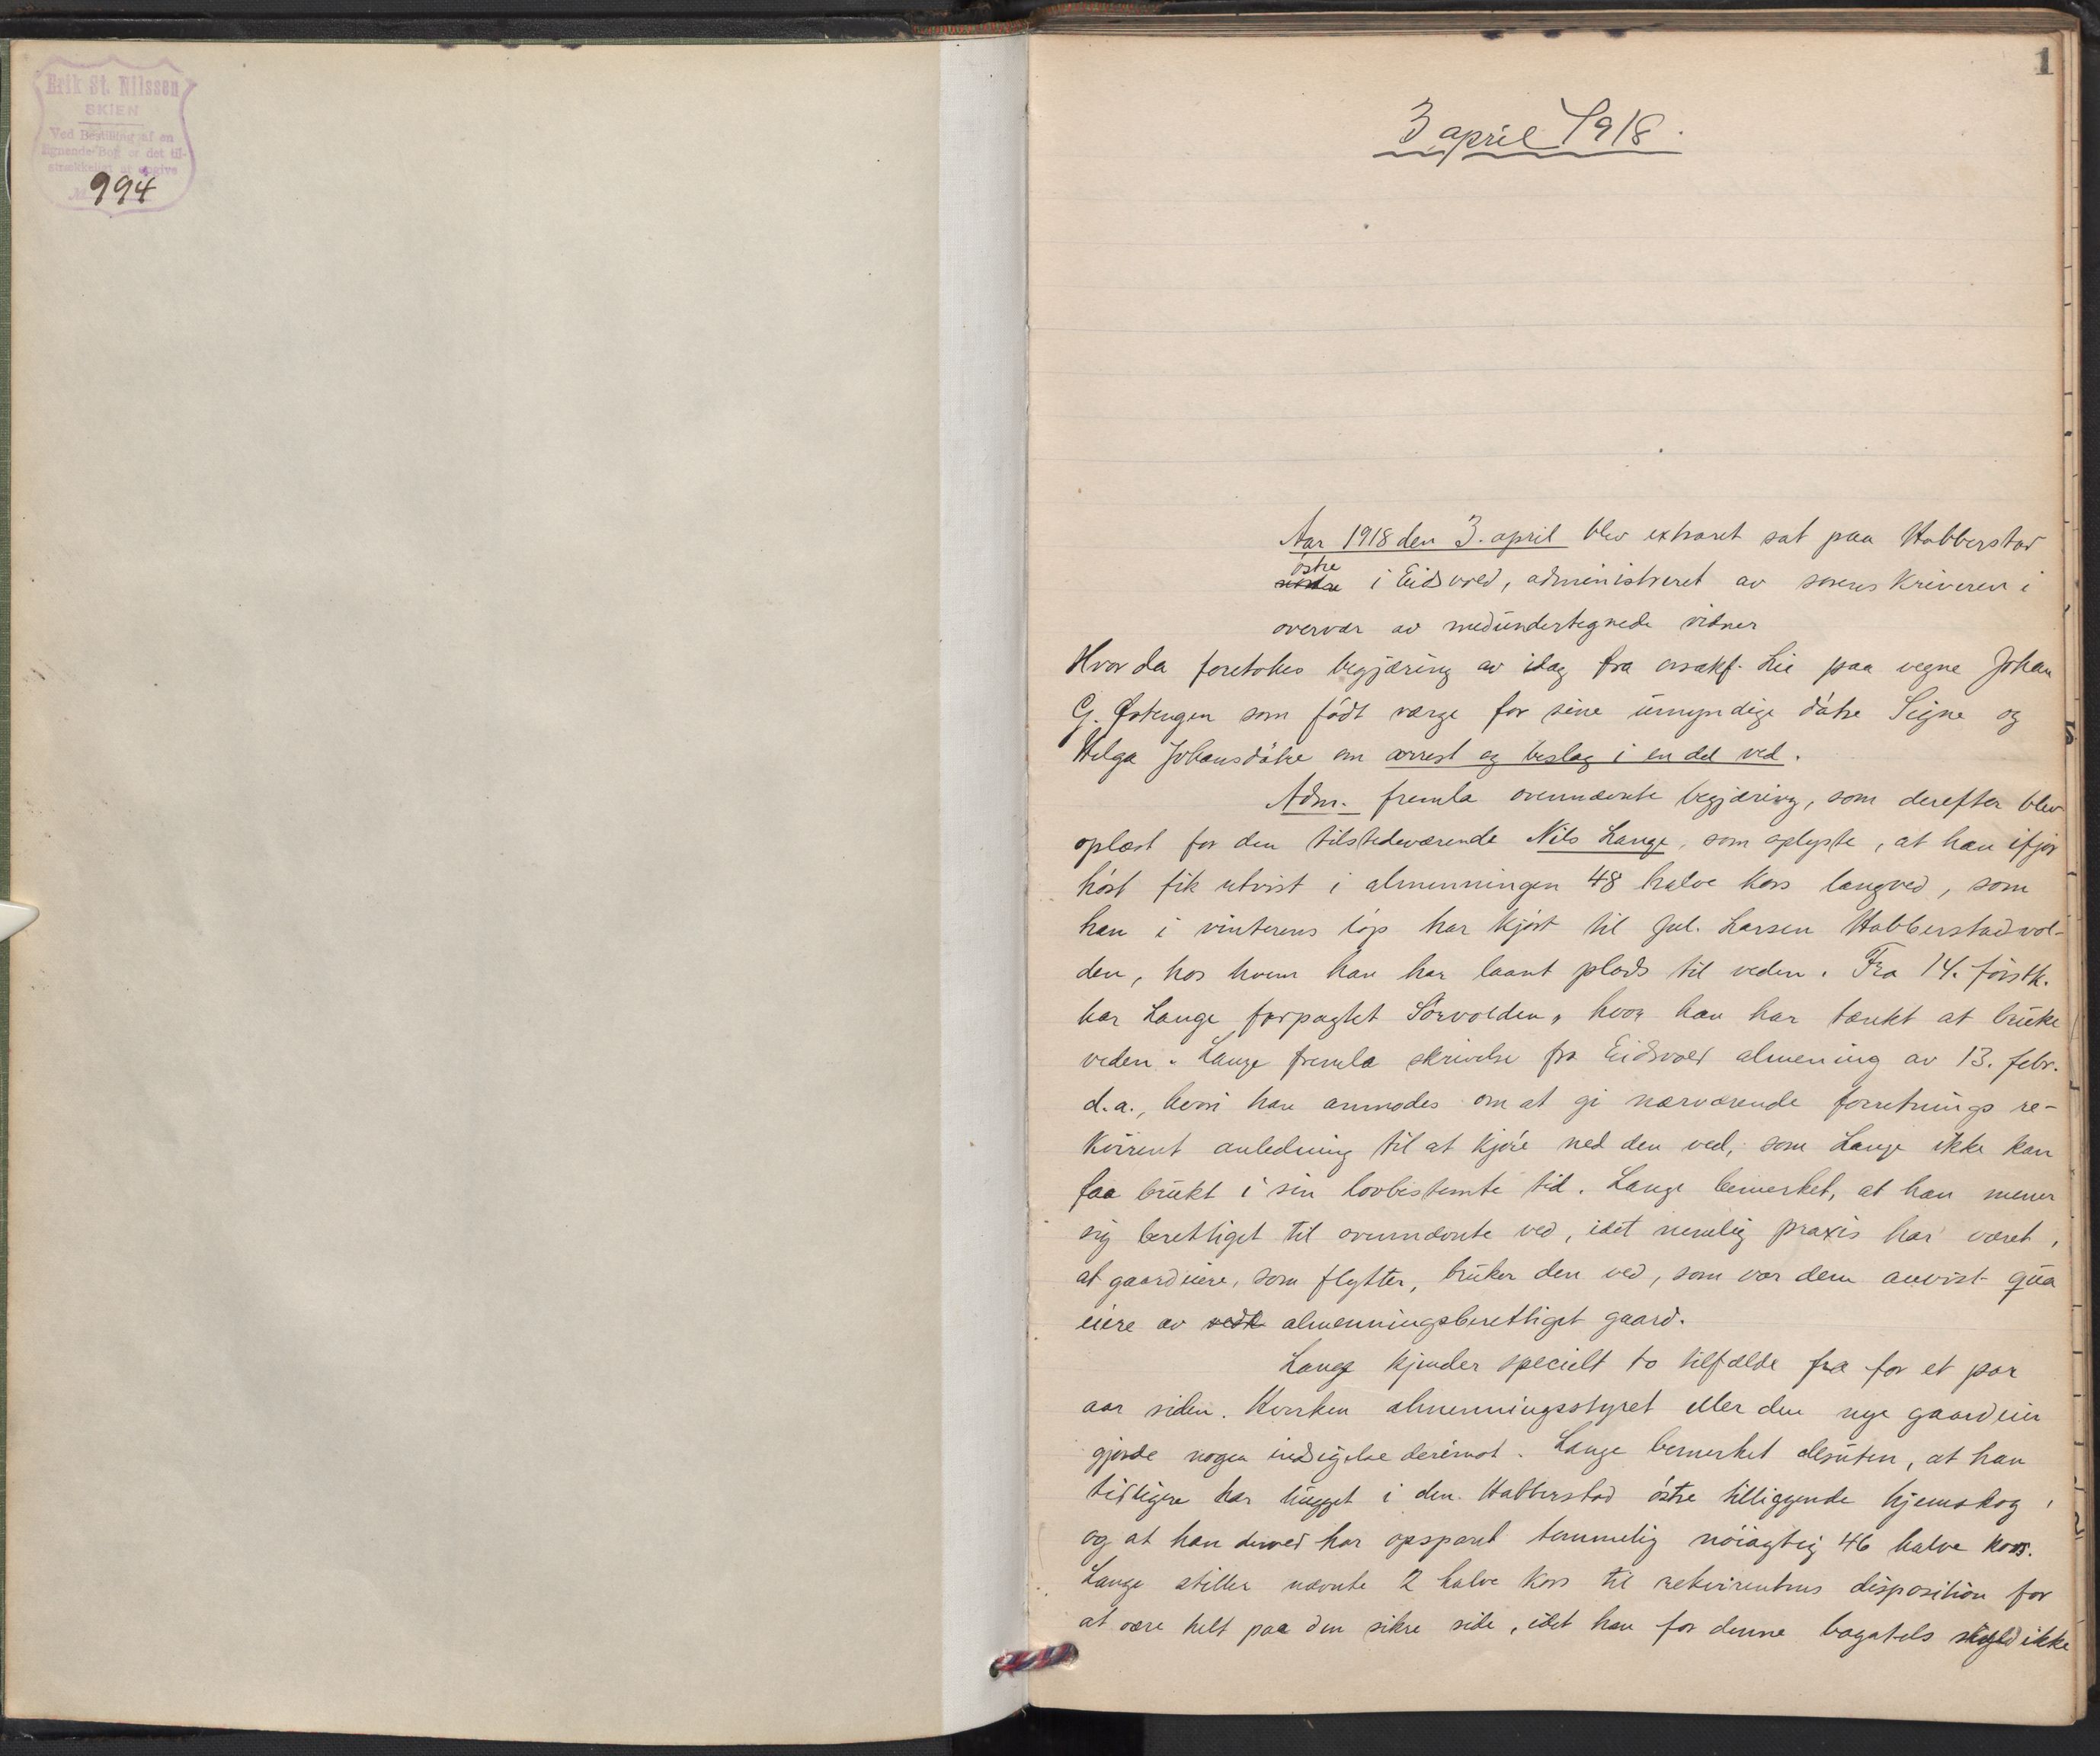 Erik St. Nilssen
SKIEN
Ved Bestilling af en
lignende Bog er det til-
strækkeligt at opgive
994
1
3 april 1918.
Aar 1918 den 3. april blev extraret sat paa Habberstad
østre
i Eidsvold, administreret av sorenskriveren i
overvær av medundertegnede vidner
Hvor da foretokes begjæring av idag fra o.r.sakf. Lie paa vegne Johan
G. Østengen som født værge for sine umyndige døtre Signe og
Helga Johansdøtre om arrest og beslag i en del ved.
Adm. fremla ovennævnte begjæring, som derefter blev
oplæst for den tilstedeværende Nils Lange, som oplyste, at han ifjor
høst fik utvist i almenningen 48 halve kors langved, som
han i vinterens løp har kjørt til Jul. Larsen Habberstadvol-
den, hos hvem han har laant plads til veden. Fra 14. førstk.
har Lange forpagtet Sørvolden, hvor han har tænkt at bruke
veden. Lange fremla skrivelse fra Eidsvold almening av 13. febr.
d.a., hvori han anmodes om at gi nærværende forretnings re-
kvirent anledning til at kjøre ned den ved, som Lange ikke kan
faa brukt i sin lovbestemte tid. Lange bemerket, at han mener
sig berettiget til ovennævnte ved, idet nemlig praxis har været,
at gaardeiere, som flytter, bruker den ved, som var dem anvist qua
eiere av almenningsberettiget gaard.
Lange kjender specielt to tilfælde fra for et par
aar siden. Hverken almenningsstyret eller den nye gaardeier
gjorde nogen indsigelse derimot. Lange bemerket desuten, at han
tidligere har hugget i den Habberstad østre tilliggende hjemskog,
og at han derved har opsparet temmelig nøiagtig 46 halve kors.
Lange stiller nævnte 2 halve kors til rekvirentens disposition for
at være helt paa den sikre side, idet han for denne bagatels skyld ikke